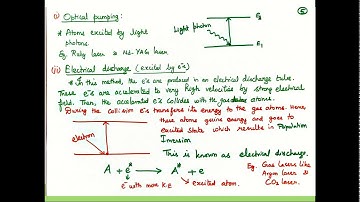 (i) Optical pumping:
* Atoms excited by light
photons.
Eg. Ruby laser & Nd-YAG laser
Light photon
E2
E1
5
(ii) Electrical discharge (excited by e⁻s)
* In this method, the e⁻s are produced in an electrical discharge tube.
These e⁻s are accelerated to very high velocities by strong electrical
field. Then, the accelerated e⁻s collides with the gas atoms.
During the collision e⁻s transfers its energy to the gas atoms. Hence
these atoms gains energy and goes to
excited state which results in Population
Inversion
electron
This is known as electrical discharge.
A + e* → A* + e
e⁻ with more K.E
excited atom.
Eg. Gas lasers like
Argon laser &
CO2 laser.